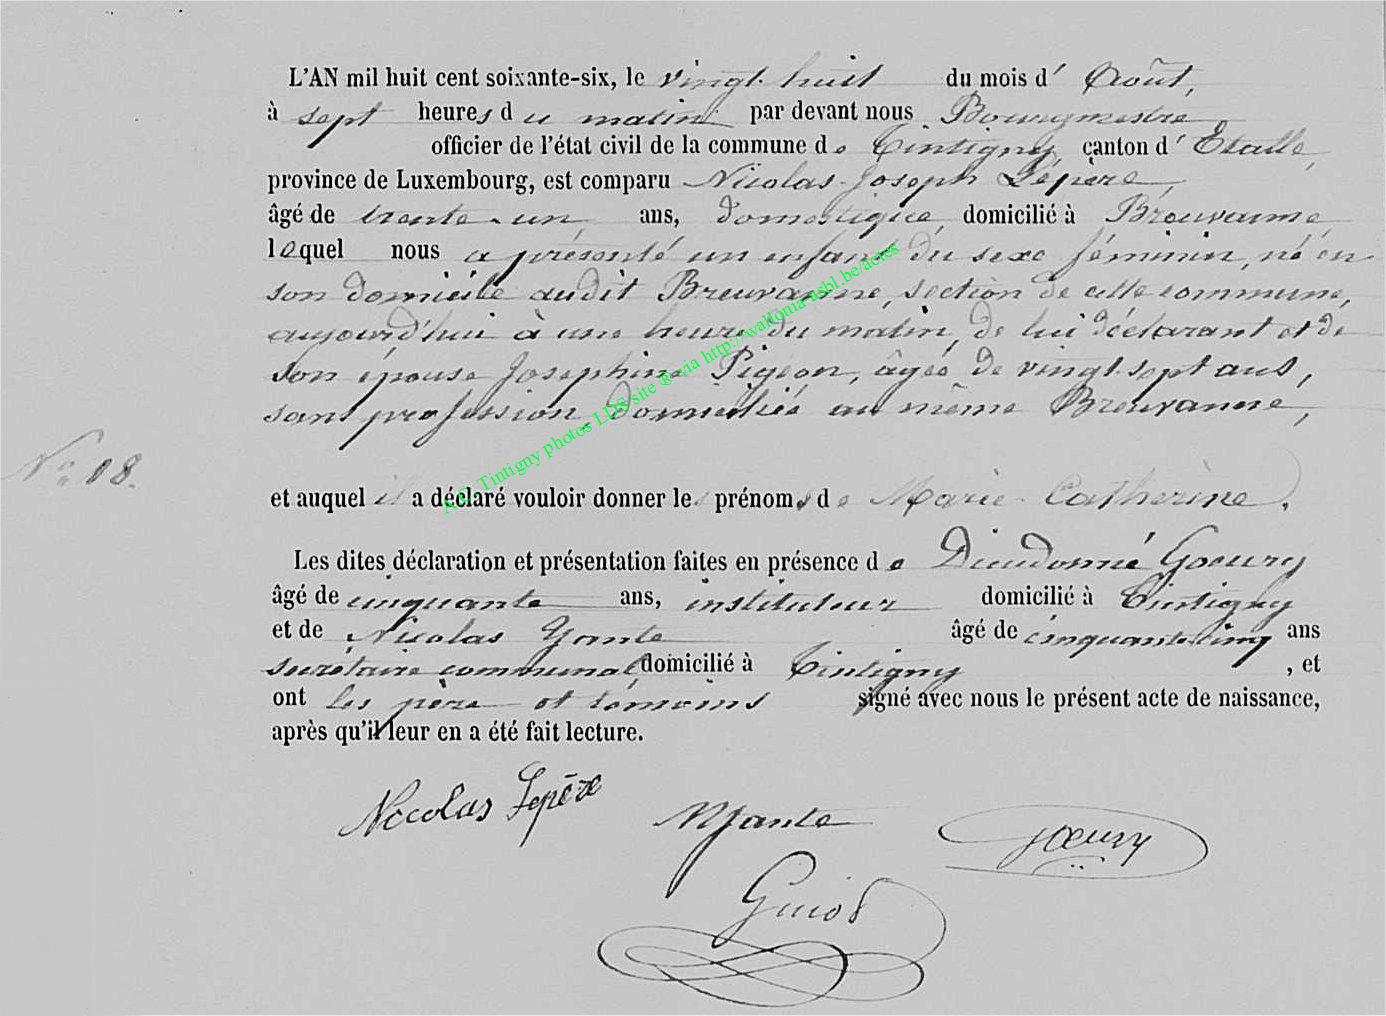 L'AN mil huit cent soixante-six, le vingt huit du mois d' Août,
à sept heures du matin par devant nous Bourgmestre
officier de l'état civil de la commune de Tintigny canton d' Etalle,
province de Luxembourg, est comparu Nicolas-Joseph Lépère,
âgé de trente-un ans, domestique, domicilié à Breuvanne
lequel nous a présenté un enfant du sexe féminin, né en
son domicile audit Breuvanne, section de cette commune,
aujourd'hui à une heure du matin, de lui déclarant et de
son épouse Joséphine Pigeon, âgée de vingt sept ans,
sans profession, domiciliée au même Breuvanne,
N° 18.
et auquel il a déclaré vouloir donner les prénoms de Marie Catherine.
Les dites déclaration et présentation faites en présence de Dieudonné Goeury
âgé de cinquante ans, instituteur domicilié à Tintigny
et de Nicolas Yante âgé de cinquante cinq ans
secrétaire communal, domicilié à Tintigny , et
ont les père et témoins signé avec nous le présent acte de naissance,
après qu'il leur en a été fait lecture.
Nicolas Lepère NYante Goeury
Guiot
A.C. Tintigny photos LDS site ® via http://wallonia-asbl.be/actes